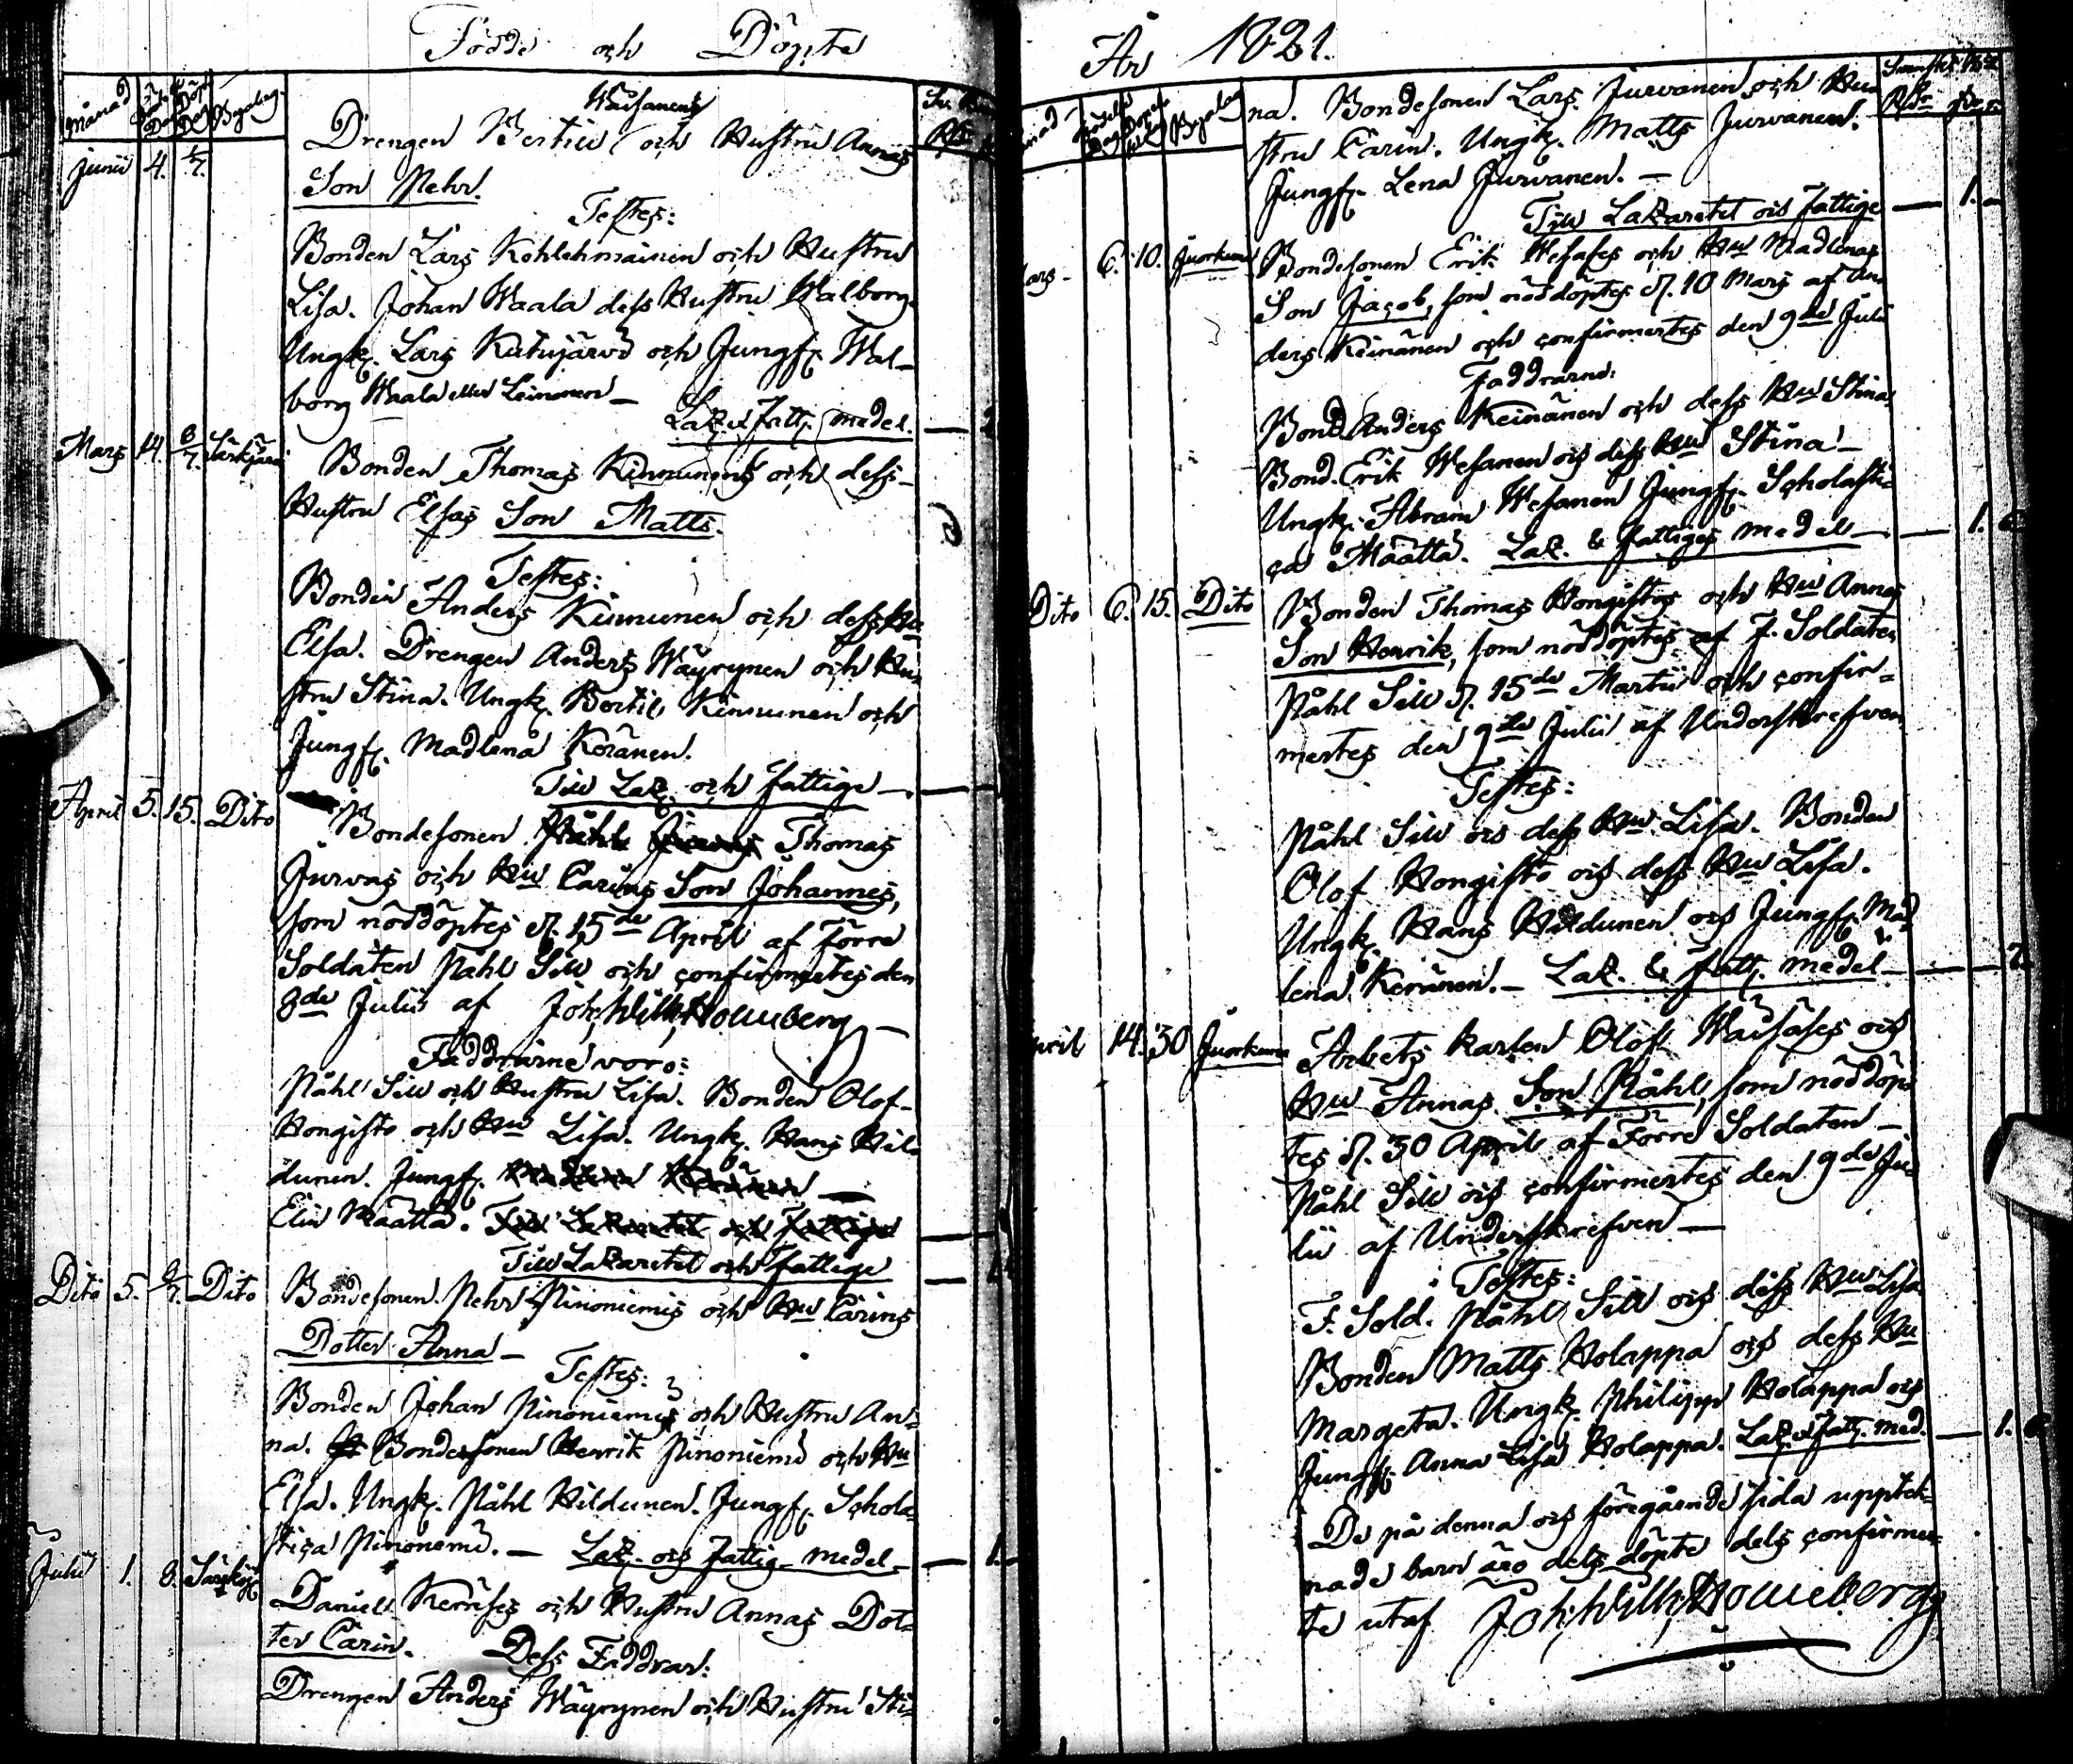 Födde och Döpte
Månad Födelse Dag Döpelse Dag Byalag
Wäisänens
Junii 4. 1/7. Drengen Bertill och Hustru Annas
Son Pehr.
Testes:
Bonden Lars Kohlehmainen och Hustru
Lisa. Johan Waala dess Hustru Walborg.
Ungk. Lars Kutujärvi och Jungf. Wal-
borg Waala eller Leinonen —
Laz. & Fatt. medel. —
Mars 14. 8/7. Särkjärvi Bonden Thomas Kinnunens och dess
Hustru Elsas Son Matts.
Testes:
Bonden Anders Kinnunen och dess Hu
Elsa. Drengen Anders Wäyrynen och Hu-
stru Stina. Ungk. Bertil Kinnunen och
Jungf. Madlena Keränen.
Till Laz. och fattige —
April 5. 15. Dito Bondesonen Påhl Thomas
Jurvas och Hu Carins Son Johannes,
som nöddöptes d. 15de April af Förre
Soldaten Påhl Sill och confirmertes den
8de Julii af Joh. Wilh. Holmberg —
Faddrarne voro:
Påhl Sill och Hustru Lisa. Bonden Olof
Hongisto och Hu Lisa. Ungk. Hans Hil-
dunen. Jungf. Madlena Keränen —
Elin Määttä. Till Lazaretet och Fattige
Till Lazaretet och fattige —
Dito 5. 8/7. Dito Bondesonen Pehr Niinoniemis och Hu Carins
Dotter Anna —
Testes:
Bonden Johan Niinoniemis och Hustru An-
na. Bondesonen Henrik Niinoniemi och Hu
Elsa. Ungk. Påhl Hildunen. Jungf. Schola-
stica Niinoniemi. — Laz. och Fattig medel — 1.
Julii 1. 8. Särkij. Daniel Kerrises och Hustru Annas Dot-
ter Carin. Dess Faddrar:
Drengen Anders Wäyrynen och Hustru Sti-
År 1821.
na. Bondesonen Lars Jurvanen och Hu-
stru Carin. Ungk. Matts Jurvanen.
Jungf. Lena Jurvanen. —
Till Lazaretet och Fattige — 1. —
Mars 6. 10. Juorkuna Bondesonen Erik Wesases och Hu Madlenas
Son Jacob, som nöddöptes d. 10 Mars af An-
ders Keinänen och confirmertes den 9de Julii
Faddrarne:
Bond. Anders Keinänen och dess Hu Stina
Bond. Erik Wesanen och dess Hu Stina —
Ungk. Abram Wesanen Jungf. Scholasti-
ca Määttä. Laz. & Fattiges medel — 1. 6
Dito 6. 15. Dito Bonden Thomas Hongistos och Hu Annas
Son Henrik, som nöddöptes af F. Soldaten
Påhl Sill d. 15de Martii och confir-
mertes den 9de Julii af Underskrefven
Testes:
Påhl Sill och dess Hu Lisa. Bonden
Olof Hongisto och dess Hu Lisa.
Ungk. Hans Hildunen och Jungf. Mad-
lena Keränen. — Laz. & Fatt. medel —
April 14. 30 Juorkuna Arbets karlen Olof Wäisäses och
Hu Annas Son Påhl, som nöddöp-
tes d. 30 April af Förre Soldaten —
Påhl Sill och confirmertes den 9de Ju-
lii af Underskrefven —
Testes:
F. Sold. Påhl Sill och dess Hu Lisa
Bonden Matts Holappa och dess Hu
Margeta. Ungk. Philipp Holappa och
Jungf. Anna Lisa Holappa. Laz. & Fatt. med. — 1. 6.
De på denna och föregående sida upptek-
nade barn äro dels döpte dels confirmer-
te utaf Joh. Wilh. Holmberg